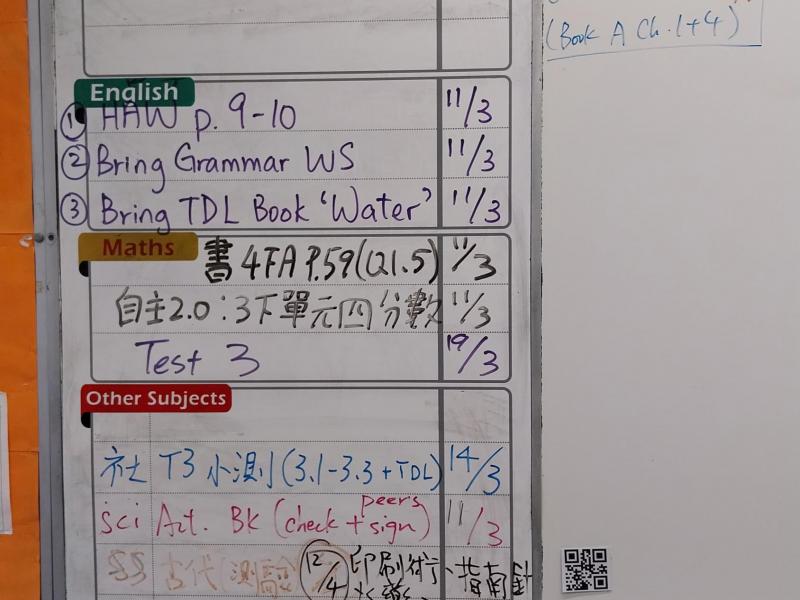 (Book A Ch. 1+4)
English
① HAW p. 9-10 11/3
② Bring Grammar WS 11/3
③ Bring TDL Book 'Water' 11/3
Maths
書 4FA P.59(Q1.5) 11/3
自主2.0:3下單元四分數 11/3
Test 3 19/3
Other Subjects
社 T3 小測(3.1-3.3+TDL) 14/3
peers
Sci Act. BK (check + sign) 11/3
SS 古代(測驗) 12/4 印刷術、指南針
火藥